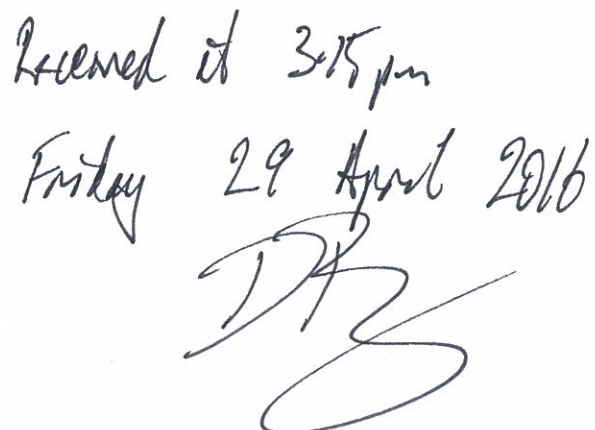 Received at 3.15pm
Friday 29 April 2016